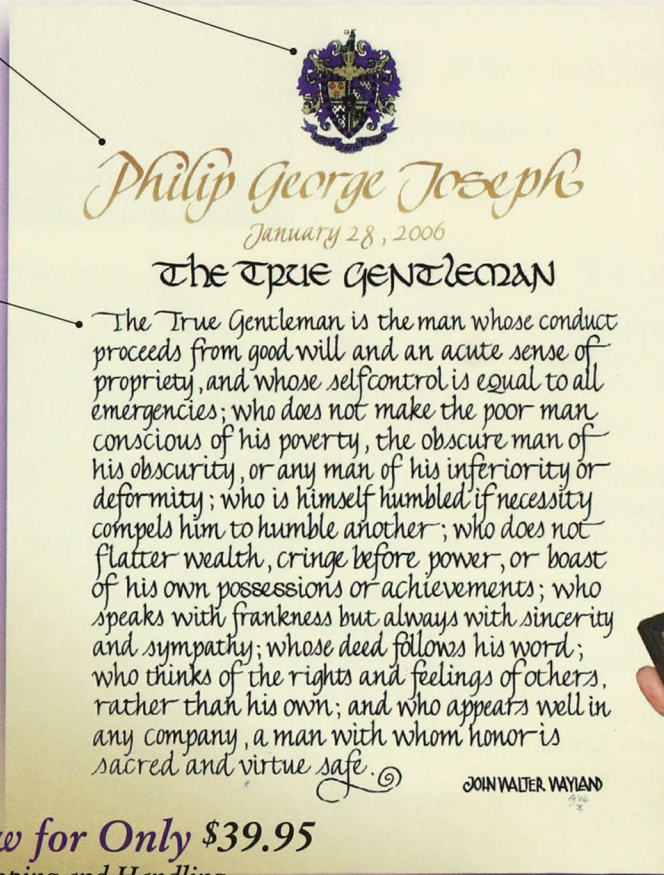 Philip George Joseph
January 28, 2006
The True Gentleman
The True Gentleman is the man whose conduct
proceeds from good will and an acute sense of
propriety, and whose selfcontrol is equal to all
emergencies; who does not make the poor man
conscious of his poverty, the obscure man of
his obscurity, or any man of his inferiority or
deformity; who is himself humbled if necessity
compels him to humble another; who does not
flatter wealth, cringe before power, or boast
of his own possessions or achievements; who
speaks with frankness but always with sincerity
and sympathy; whose deed follows his word;
who thinks of the rights and feelings of others,
rather than his own; and who appears well in
any company, a man with whom honor is
sacred and virtue safe.
JOHN WALTER WAYLAND
for Only $39.95
and Handling